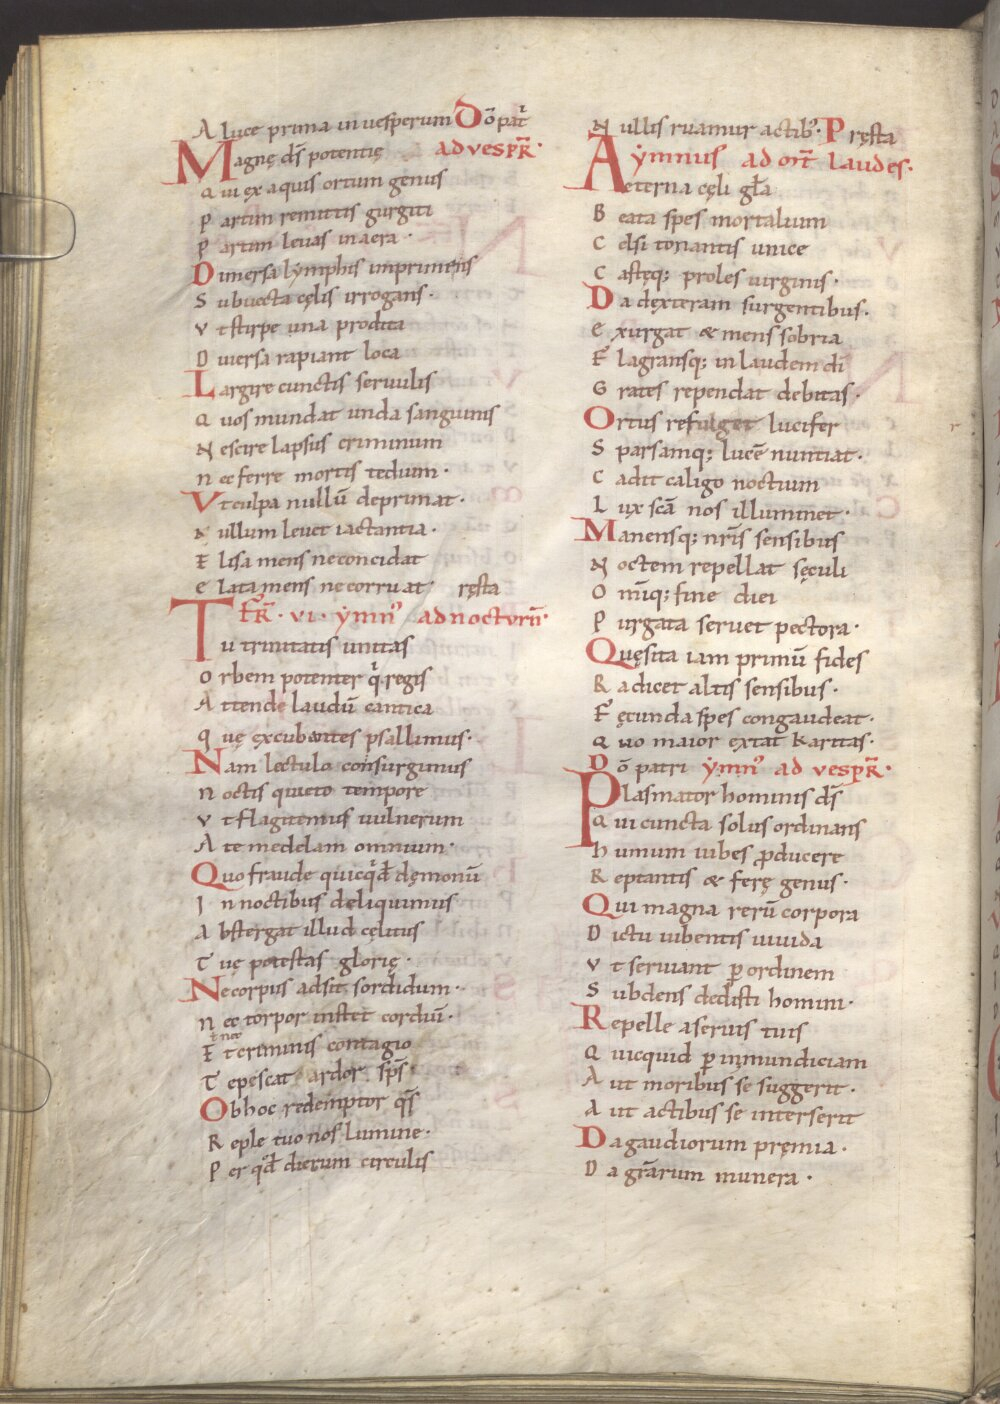 A luce prima in uesperum Dō pat̄
Magnę ds̄ potentię ad vesꝑr̄·
Q ui ex aquis ortum genus
P artim remittis gurgiti
P artim leuas in aera·
D imersa lymphis imprimens
S ubuecta cęlis irrogans·
V t stirpe una prodita
D iuersa rapiant loca
L argire cunctis seruulis
Q uos mundat unda sanguinis
N escire lapsus criminum
N ec ferre mortis tedium·
V t culpa nullū deprimat·
N ullum leuet iactantia·
E lisa mens ne concidat
E lata mens ne corruat· ręsta
FR̄· VI· ẏmn᾽ ad noctvrn̄·
Tu trinitatis unitas
O rbem potenter q̇ regis
A ttende laudū cantica
Q uę excubantes psallimus·
N am lectulo consurgimus
N octis quieto tempore
V t flagitemus uulnerum
A te medelam omnium·
Q uo fraude quicq̇d dęmonū
I n noctibus deliquimus
A bstergat illud cęlitus
T uę potestas glorię·
N e corpus adsit sordidum·
N ec torpor instet cordiū·
ł nec
E t criminis contagio
T epescat ardor sps̄
O b hoc redemptor qs̄
R eple tuo nos lumine·
P er qd̄ dierum circulis
N ullis ruamur actib᾽· P ręsta
ẏmnus ad ort̄ laudes·
Aeterna cęli gła
B eata spes mortalium
C elsi tonantis unice
C asteq; proles uirginis·
D a dexteram surgentibus·
E xurgat & mens sobria
F lagransq; in laudem di
G rates rependat debitas·
O rtus refulget lucifer
S parsamq; lucē nuntiat·
C adit caligo noctium
L ux scā nos illuminet·
M anensq; nrīs sensibus
N octem repellat sęculi
O m̄iq; fine diei
P urgata seruet pectora·
Q uęsita iam primū fides
R adicet altis sensibus·
F ęcunda spes congaudeat·
Q uo maior extat karitas·
D ō patri ẏmn᾽ ad vesꝑr̄·
Plasmator hominis ds̄
Q ui cuncta solus ordinans
H umum iubes ꝓducere
R eptantis & ferę genus·
Q ui magna rerū corpora
D ictu iubentis uiuida
V t seruiant ꝑ ordinem
S ubdens dedisti homini·
R epelle a seruis tuis
Q uicquid ꝑ inmundiciam
A ut moribus se suggerit·
A ut actibus se interserit
D a gaudiorum pręmia·
D a grāarum munera·